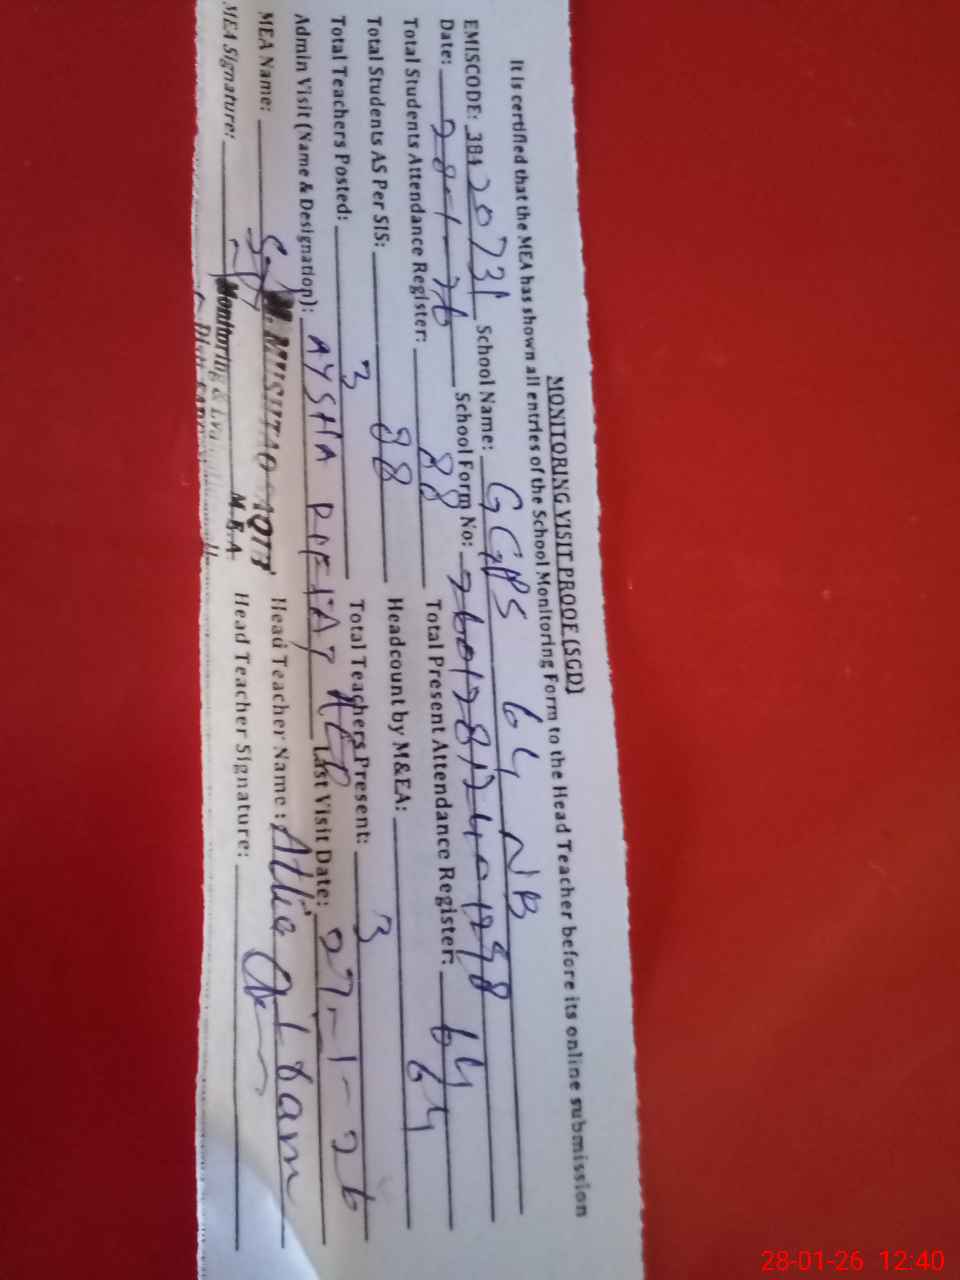 MONITORING VISIT PROOF (SGD)
It is certified that the MEA has shown all entries of the School Monitoring Form to the Head Teacher before its online submission
EMISCODE: 38420731 School Name: GGPS 64 NB
Date: 28-1-26 School Form No:
Total Students Attendance Register: 88 Total Present Attendance Register: 64
Total Students AS Per SIS: 88 Headcount by M&EA: 64
Total Teachers Posted: 3 Total Teachers Present: 3
Admin Visit (Name & Designation): AYSHA RIFFAT AEO Last Visit Date: 27-1-26
MEA Name: MUSHTAQ Head Teacher Name:
MEA Signature: Monitoring & M.E.A Head Teacher Signature:
28-01-26 12:40